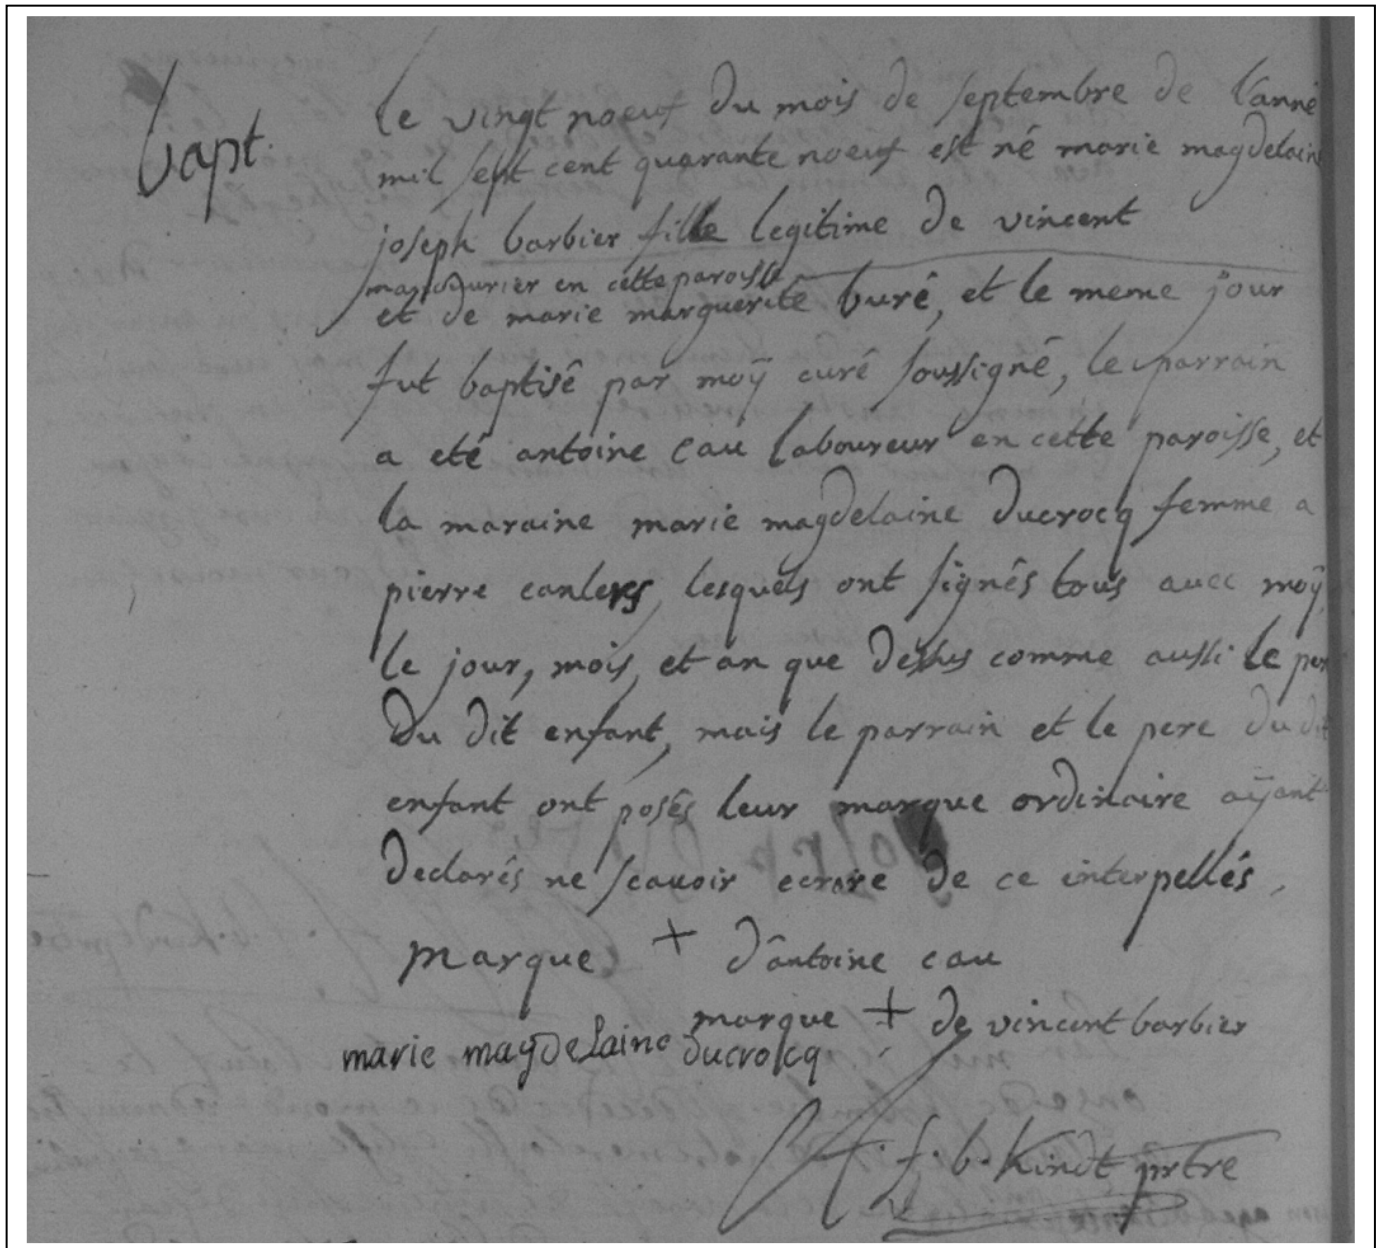 bapt.
le vingt noeuf du mois de septembre de l'anné
mil sept cent quarante noeuf est né marie magdelain
joseph barbier fille legitime de vincent
manouvrier en cette paroisse
et de marie marguerite buré, et le meme jour
fut baptisé par moÿ curé soussigné, le parrain
a eté antoine cau laboureur en cette paroisse, et
la maraine marie magdelaine ducrocq femme a
pierre canlers, lesquels ont signés tous avec moÿ
le jour, mois, et an que dessus comme aussi le per
du dit enfant, mais le parrain et le pere du dit
enfant ont posés leur marque ordinaire aÿant
declarés ne scavoir ecrire de ce interpellés,
marque + d'antoine cau
marque + de vincent barbier
marie magdelaine ducrocq
f. b. Kindt prtre